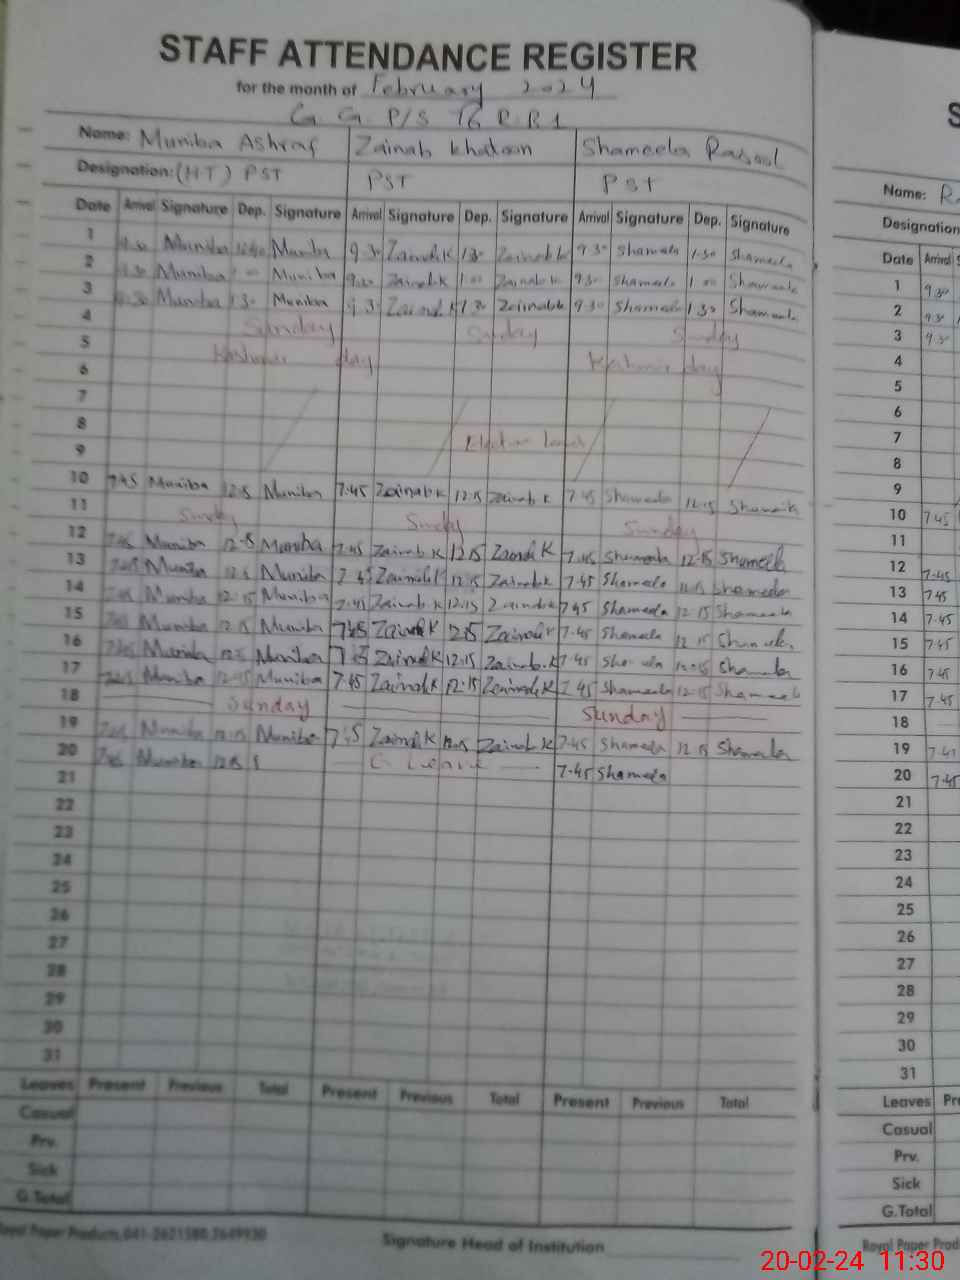 STAFF ATTENDANCE REGISTER
for the month of February 2024
G. G. P/S 76 R.B1
Name: Muniba Ashraf Zainab Khatoon Shameela Rasool
Designation: (HT) PST PST PST
Date Arrival Signature Dep. Signature Arrival Signature Dep. Signature Arrival Signature Dep. Signature
1 9.30 Muniba Muniba 9.30 Zainab K 1.30 Zainab k 9.30 Shameela 1.30 Shameela
2 9.30 Muniba 1.00 Muniba Zainab k 1.00 Zainab k 9.30 Shameela 1.00 Shameela
3 9.30 Muniba 1.30 Muniba 9.30 Zainab K 1.30 Zainab k 9.30 Shameela 1.30 Shameela
4 Sunday Sunday Sunday
5 Kashmir day Kashmir day
6
7
8
9
10 7.45 Muniba 12.15 Muniba 7.45 Zainab K 12.15 Zainab K 7.45 Shameela 12.15
11 Sunday Sunday Sunday
12 7.45 Muniba 12.15 Muniba 7.45 Zainab K 12.15 Zainab K 7.45 Shameela 12.15 Shameela
13 7.45 Muniba 12.15 Muniba 7.45 Zainab K 12.15 Zainab k 7.45 Shameela 12.15 Shameela
14 7.45 Muniba 12.15 Muniba 7.45 Zainab K 12.15 Zainab k 7.45 Shameela 12.15 Shameela
15 7.45 Muniba 12.15 Muniba 7.45 Zainab K 12.15 Zainab K 7.45 Shameela 12.15
16 7.45 Muniba 12.15 Muniba 7.45 Zainab K 12.15 Zainab K 7.45 12.15 Shameela
17 7.45 Muniba 12.15 Muniba 7.45 Zainab K 12.15 Zainab K 7.45 Shameela 12.15 Shameela
18 Sunday Sunday
19 7.45 Muniba 12.15 Muniba 7.45 Zainab K 12.15 Zainab K 7.45 Shameela 12.15 Shameela
20 7.45 Muniba 12.15 7.45 Shameela
21
22
23
24
25
26
27
28
29
30
31
Leaves Present Previous Total Present Previous Total Present Previous Total
Casual
Prv.
Sick
G.Total
Royal Paper Products,041-2621580,2649930
Signature Head of Institution
S
Name:
Designation
Date Arrival S
1 9.30
2 9.30
3 9.30
4
5
6
7
8
9
10 7.45
11
12 7.45
13 7.45
14 7.45
15 7.45
16 7.45
17 7.45
18
19
20 7.45
21
22
23
24
25
26
27
28
29
30
31
Leaves Pre
Casual
Prv.
Sick
G.Total
Royal Paper Prod
20-02-24 11:30